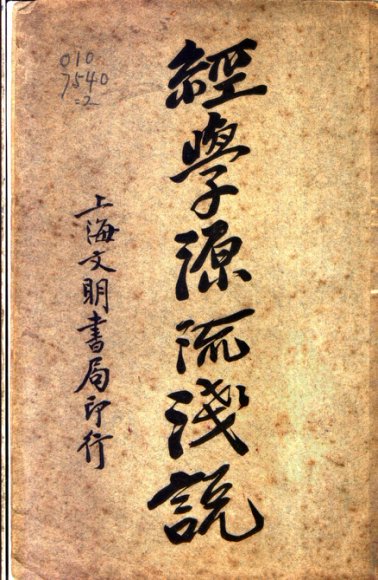 010
7540
=2
經學源流淺説
上海文明書局印行